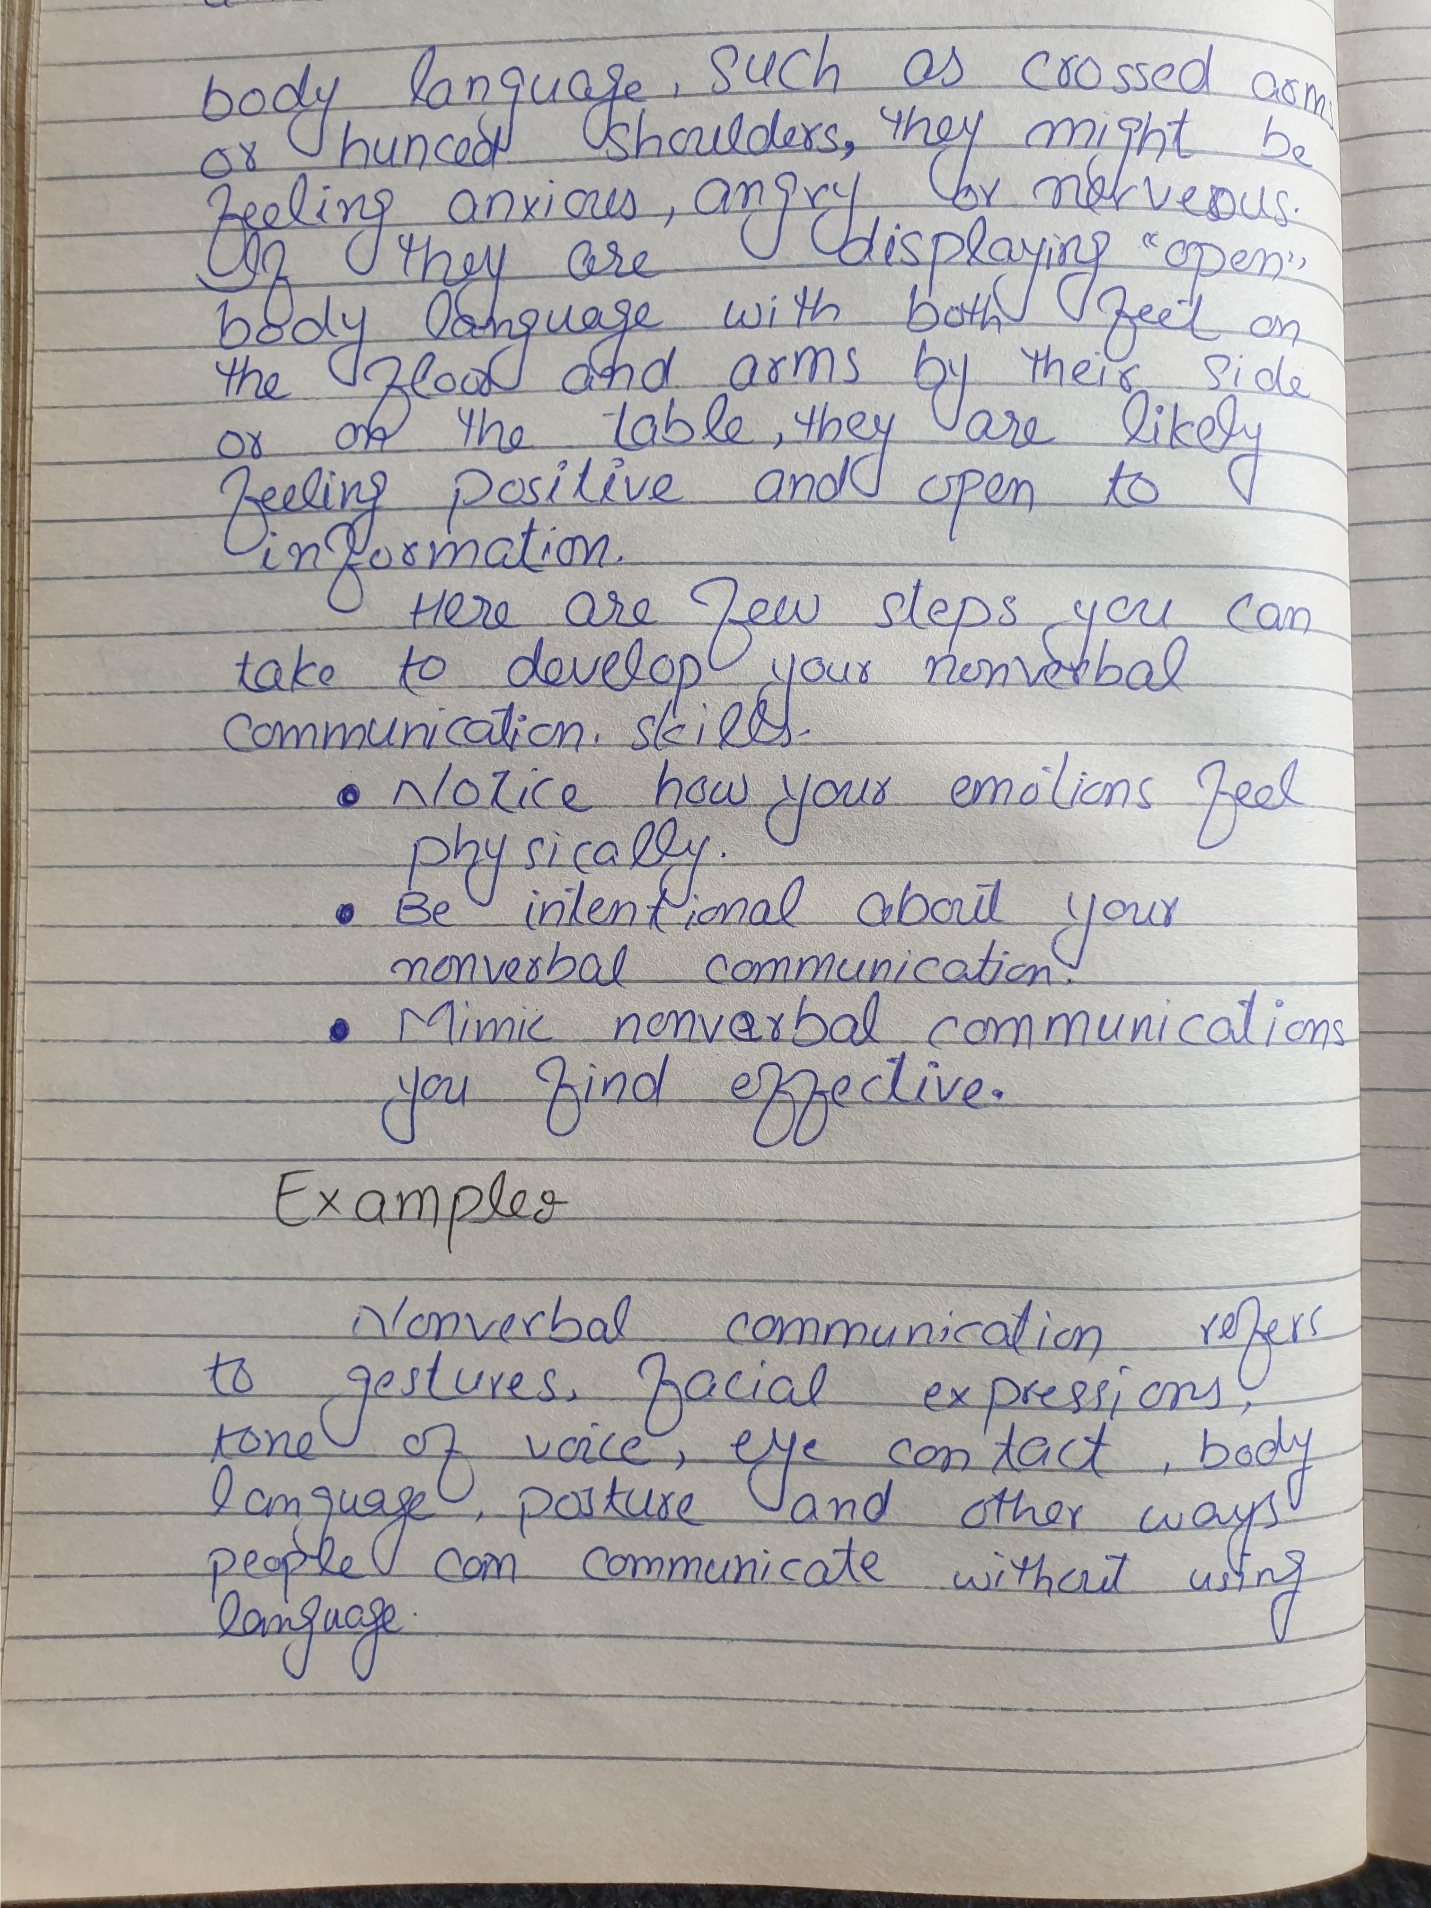 body language, such as crossed arms
or hunced shoulders, they might be
feeling anxious, angry or nerveous.
If they are displaying "open"
body language with both feet on
the floor and arms by their side
or on the table, they are likely
feeling positive and open to
information.
Here are few steps you can
take to develop your nonverbal
communication. skills.
• Notice how your emotions feel
physically.
• Be intentional about your
nonverbal communication.
• Mimic nonverbal communications
you find effective.
Examples
Nonverbal communication refers
to gestures, facial expressions,
tone of voice, eye contact, body
language, posture and other ways
people can communicate without using
language.